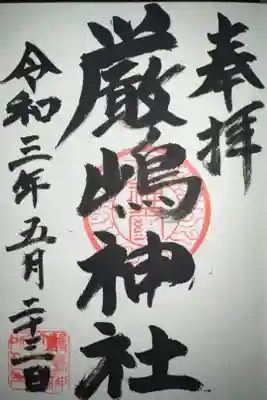 奉拝
厳嶋神社
令和三年五月二十三日